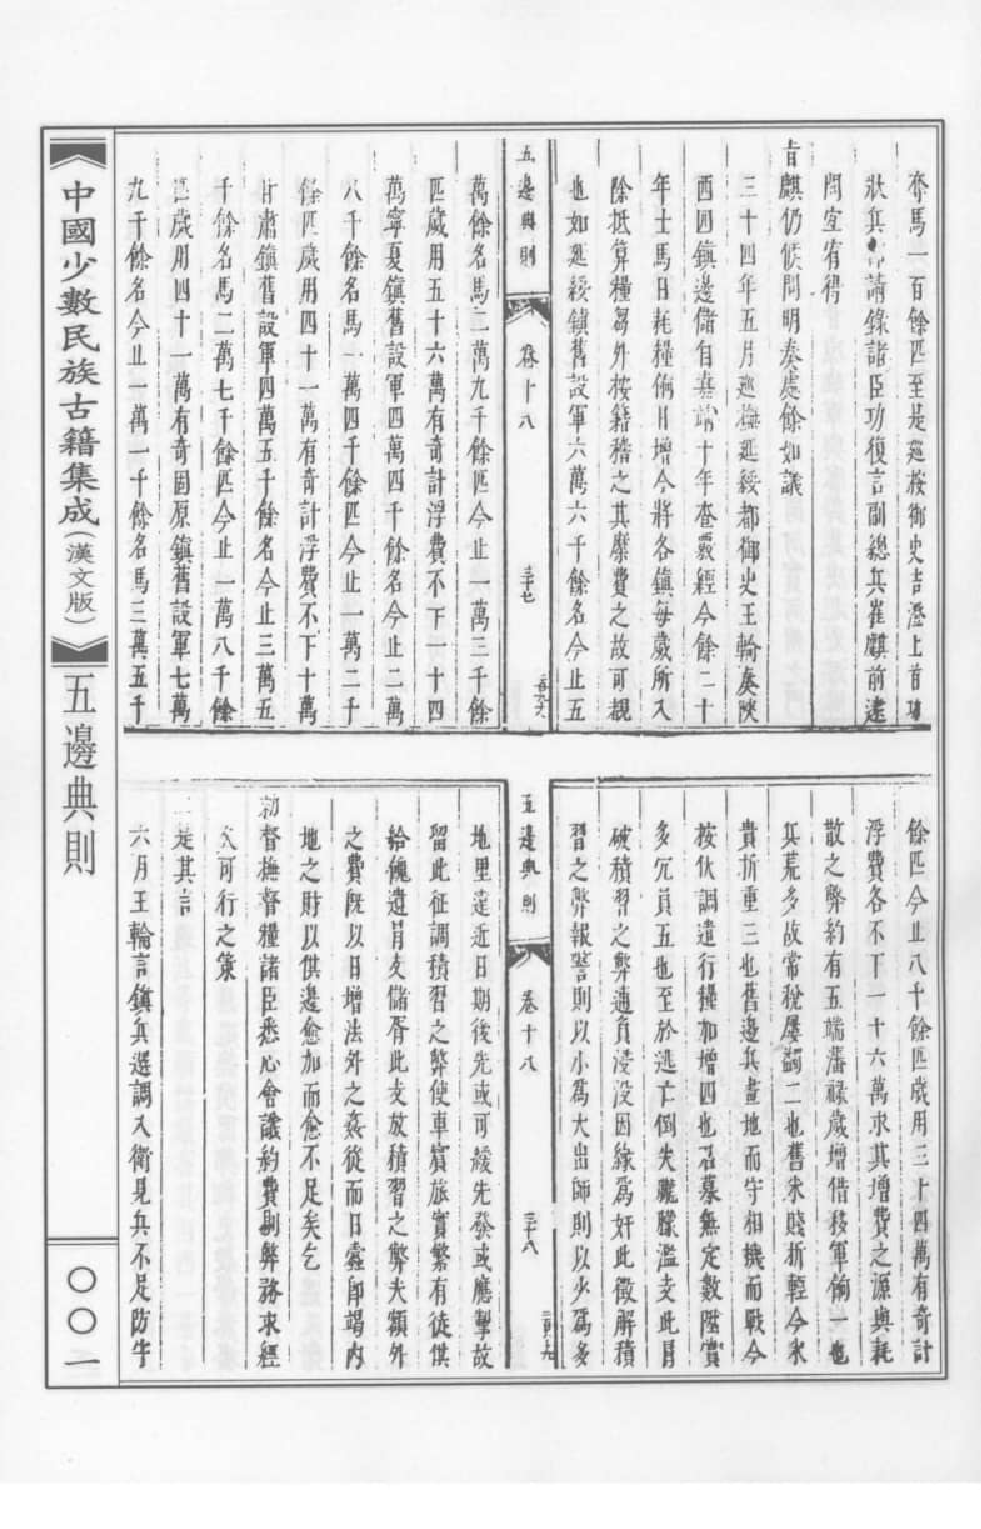 奔馬一百餘匹至是巡按御史吉澄上首功
狀兵部請錄諸臣功復言副總兵崔麒前逮
問宜有得
旨麒仍候問明奏處餘如議
三十四年五月巡撫延綏都御史王輪奏陝
西四鎮邊儲自嘉靖十年查覈經今餘二十
年士馬日耗糧餉日增今將各鎮每歲所入
除抵算糧芻外按籍稽之其糜費之故可覩
也如延綏鎮舊設軍六萬六千餘名今止五
五邊典則
卷十八
三十七
萬餘名馬二萬九千餘匹今止一萬三千餘
匹歲用五十六萬有奇計浮費不下一十四
萬寧夏鎮舊設軍四萬四千餘名今止二萬
八千餘名馬一萬四千餘匹今止一萬二千
餘匹歲用四十一萬有奇計浮費不下十萬
甘肅鎮舊設軍四萬五千餘名今止三萬五
千餘名馬二萬七千餘匹今止一萬八千餘
匹歲用四十一萬有奇固原鎮舊設軍七萬
九千餘名今止一萬一千餘名馬三萬五千
餘匹今止八千餘匹歲用三十四萬有奇計
浮費各不下一十六萬求其增費之源與耗
散之弊約有五端藩祿歲增借移軍餉一也
其荒多故常稅屢蠲二也舊米賤折輕今米
貴折重三也舊邊兵畫地而守相機而戰今
按伏調遣行糧加增四也召募無定數陞賞
多冗員五也至於逃亡倒失朦朧濫支此冒
破積習之弊逋負浸沒因緣為奸此徵解積
習之弊報警則以小為大出師則以少為多
五邊典則
卷十八
三十八
地里遠近日期後先或可緩先發或應掣故
留此征調積習之弊使車賓旅實繁有徒供
給餽遺皆支儲胥此支放積習之弊夫額外
之費既以日增法外之姦從而日蠹即竭內
地之財以供邊愈加而愈不足矣乞
勑督撫督糧諸臣悉心會議約費剔弊務求經
久可行之策
上是其言
六月王輪言鎮兵選調入衛見兵不足防守
中國少數民族古籍集成(漢文版)
五邊典則
〇〇一